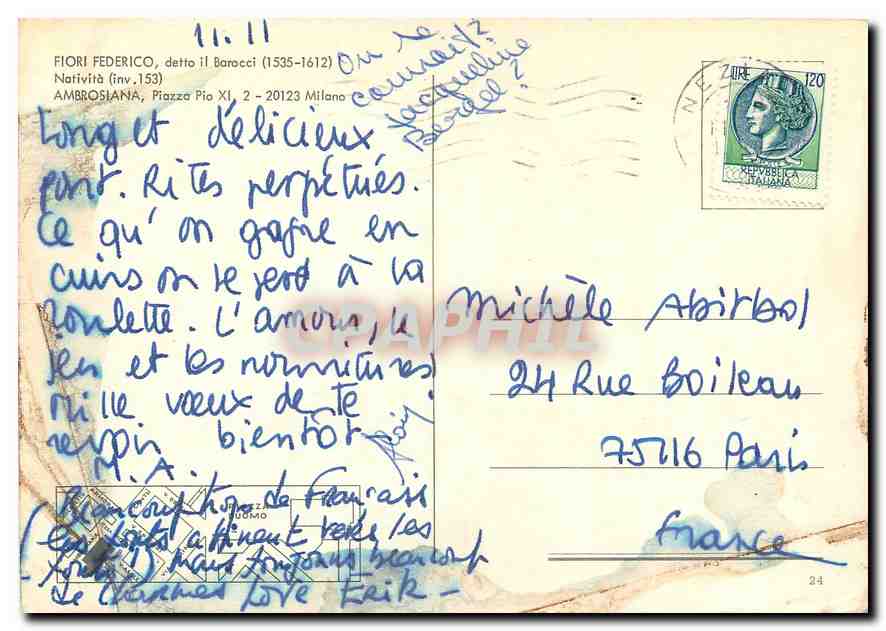 11.11
FIORI FEDERICO, detto il Barocci (1535-1612)
Natività (inv. 153)
AMBROSIANA, Piazza Pio XI, 2 - 20123 Milano
On se
connait?
Jacqueline
Long et délicieux
pont. Rites perpétués.
Ce qu'on gagne en
cuirs on le perd à la
roulette. L'amour, le
jeu et les nourritures
mille vœux de te
revoir bientôt
M. A.
Beaucoup trop de Français
les uns les
mais toujours beaucoup
de charmes Love Erik -
PIAZZA
DUOMO
NEZ
LIRE 120
REPVBBLICA
ITALIANA
Michèle Abitbol
24 Rue Boileau
75116 Paris
France
24
CPAPHIL